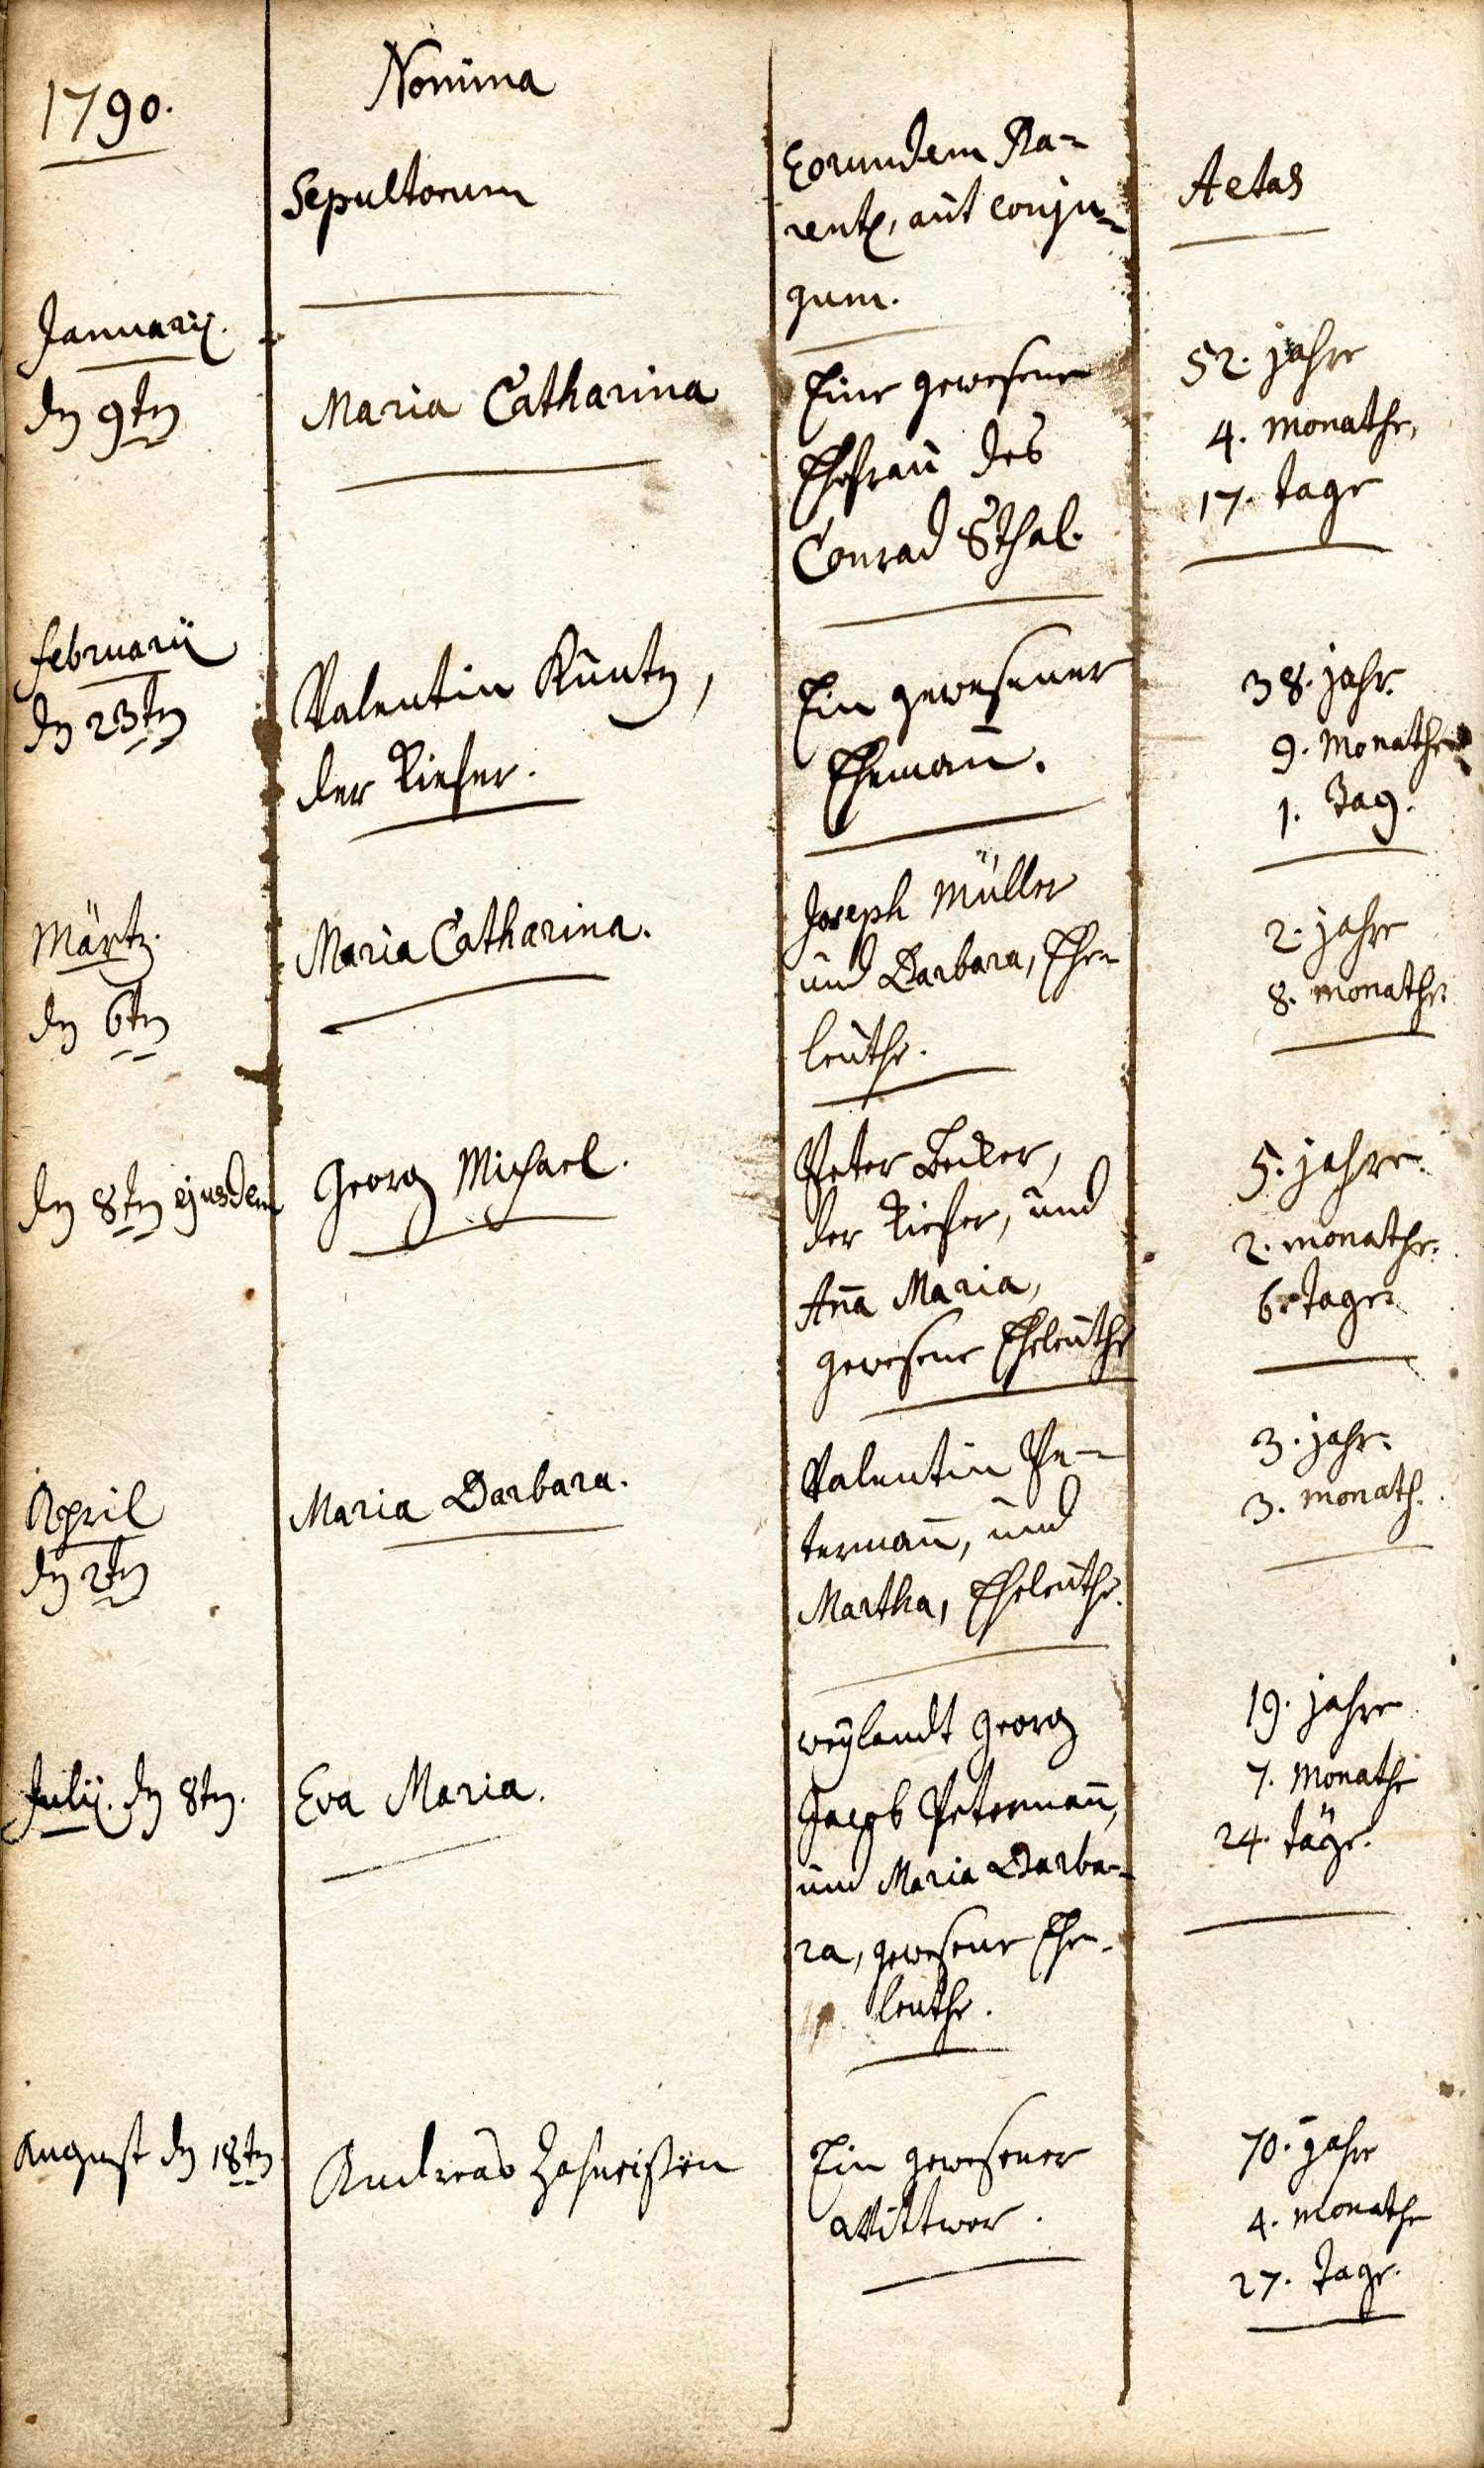 1790.
Nomina
Sepultorum
Eorundem Pa=
rent, aut conju=
gum.
Aetas
Januarij.
dn 9tn
Maria Catharina
Eine gewesene
Ehefrau des
Conrad Sthal.
52. jahre
4. Monathe,
17. tage
februarii
dn 23tn
Valentin Kuntz,
der Kiefer.
Ein gewesener
Ehemañ.
38. jahr.
9. Monathe
1. Tag.
Märtz.
dn 6tn
Maria Catharina.
Joseph Müller
und Barbara, Ehe=
leuthe.
2. jahre
8. monathe
dn 8tn ejusdem
Georg Michael.
Peter Becker,
der Kiefer, und
Aña Maria,
gewesene Eheleuthe
5. jahre.
2. monathe.
6. tage.
April
dn 2tn
Maria Barbara.
Valentin Pe=
termañ, und
Martha, Eheleuthe.
3. jahr.
3. monath.
Julij. dn 8tn.
Eva Maria.
weylandt Georg
Jacob Petermañ,
und Maria Barba=
ra, gewesene Ehe=
leuthe.
19. jahre
7. Monathe
24. täge.
August dn 18tn
Andreas
Ein gewesener
Wittwer.
70. jahre
4. monathe
27. Tage.